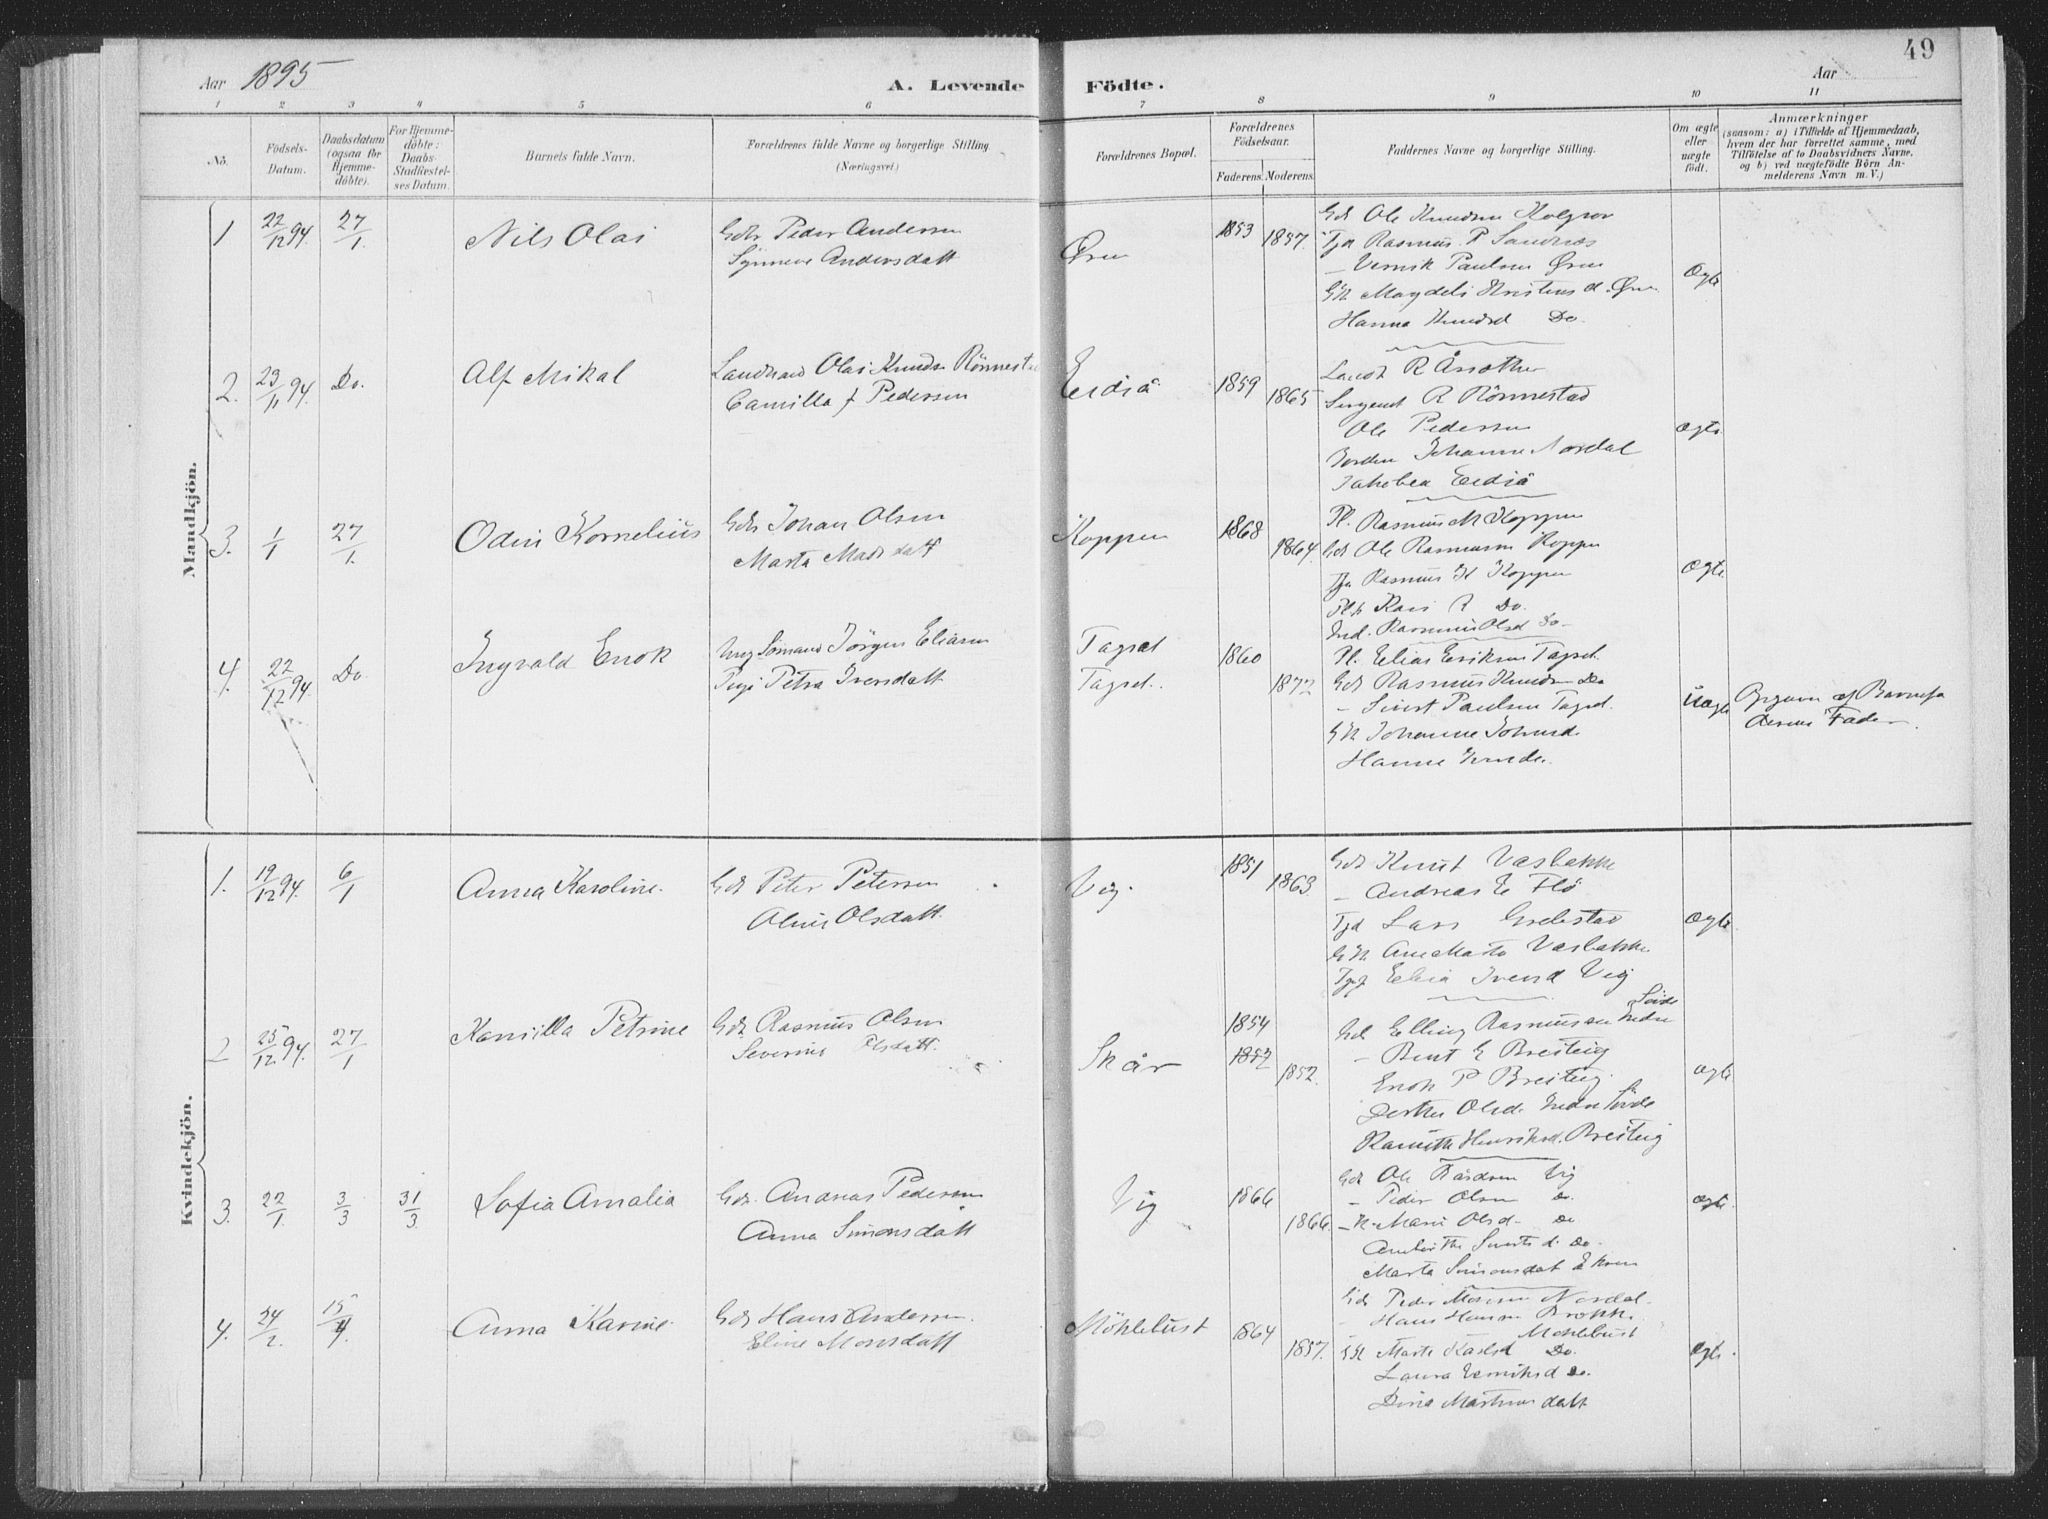 Aar 1895
A. Levende Födte.
Aar
49
1 2 3 4 5 6 7 8 9 10 11
No.
Födsels-Datum.
Daabsdatum (ogsaa for Hjemme-döbte).
For Hjemme-döbte: Daabs-Stadfæstel-ses Datum.
Barnets fulde Navn.
Forældrenes fulde Navne og borgerlige Stilling
(Næringsvei)
Forældrenes Bopæl.
Forældrenes Födselsaar.
Faderens. Moderens.
Faddernes Navne og borgerlige Stilling.
Om ægte eller uægte födt.
Anmærkninger
(saasom: a) i Tilfælde af Hjemmedaab,
hvem der har forrettet samme, med
Tilföielse af to Daabsvidners Navne,
og b) ved uægtefödte Börn An-
melderens Navn m. V.)
Mandkjön.
1 22/12 94. 27/1. Nils Olai
Gdr Peder Andersen
Synneve Andersdatt
Øren 1853 1857.
Gdr Ole Knudsen
Tjd Rasmus P Sandnes
– Paulsen Øren
Øren
Hanna Knudsd Do
Ægte
2. 29/11 94. Do. Alf Mikal
Landhand Olai Knuds Rönnestad
Camilla f Pedersen
Eidså 1859 1865
Landh R Aarsether
Sergent R Rönnestad
Ole Pedersen
Johanne Nordal
Jakobea Eidså
ægte
3. 1/1 27/1. Odin Kornelius
Gdr Johan Olsen
Marta Madsdatt
Koppen 1868 1864.
Pl. Rasmus M Koppen
Gdr Ole Rasmussen Koppen
Rasmus K Koppen
Kari R Do.
Ind. Rasmus Olsd Do
ægte
4. 22/12 94. Do Ingvald Enok
Ung Sömand Jörgen Eliasen
Pige Petra Iversdatt
Tagset
Tagset. 1860 1872
Pl. Elias Eriksen Tagset.
Gdr Rasmus Knudsen Do
– Sivert Paulsen Tagset.
Johanne
Hanne
uægte
af Barnefa
derens Fader.
Kvindekjön.
1. 19/12 94. 6/1 Anna Karoline.
Gdr Peter Petersen
Oline Olsdatt.
Vig. 1851 1863.
Gdr Knut Vasbakke
– Andreas E Flö
Tjd Lars Grebstad
Vasbakke
Iversd Vig
ægte
2 25/12 94. 27/1 Kamilla Petrine
Gdr Rasmus Olsen
Severine Olsdatt.
Skår 1854 1852 1852.
Gdr Elling Rasmussen Indre
– Bent E Breiteig
Enok P Breiteig
Olsd. Indre
Henriksd. Breiteig
ægte
3. 22/1. 3/3 31/3. Sofia Amalia
Gdr. Andreas Pedersen
Anna Simonsdatt
Vig 1866 1866.
Gdr Ole Vig
– Peder Olsen Do.
Marie Olsd. Do
Siverts d. Do.
Marta Simonsdat
ægte.
4. 24/2. 15/4. Anna Karine
Gdr Hans Andersen.
Eline Monsdatt
Möklebust 1864 1857.
Gdr Peder Monsen Nordal.
Hans Hansen
Möklebust
Marte Karlsd Do.
Laura Do.
Dina Martinus datt
ægte.